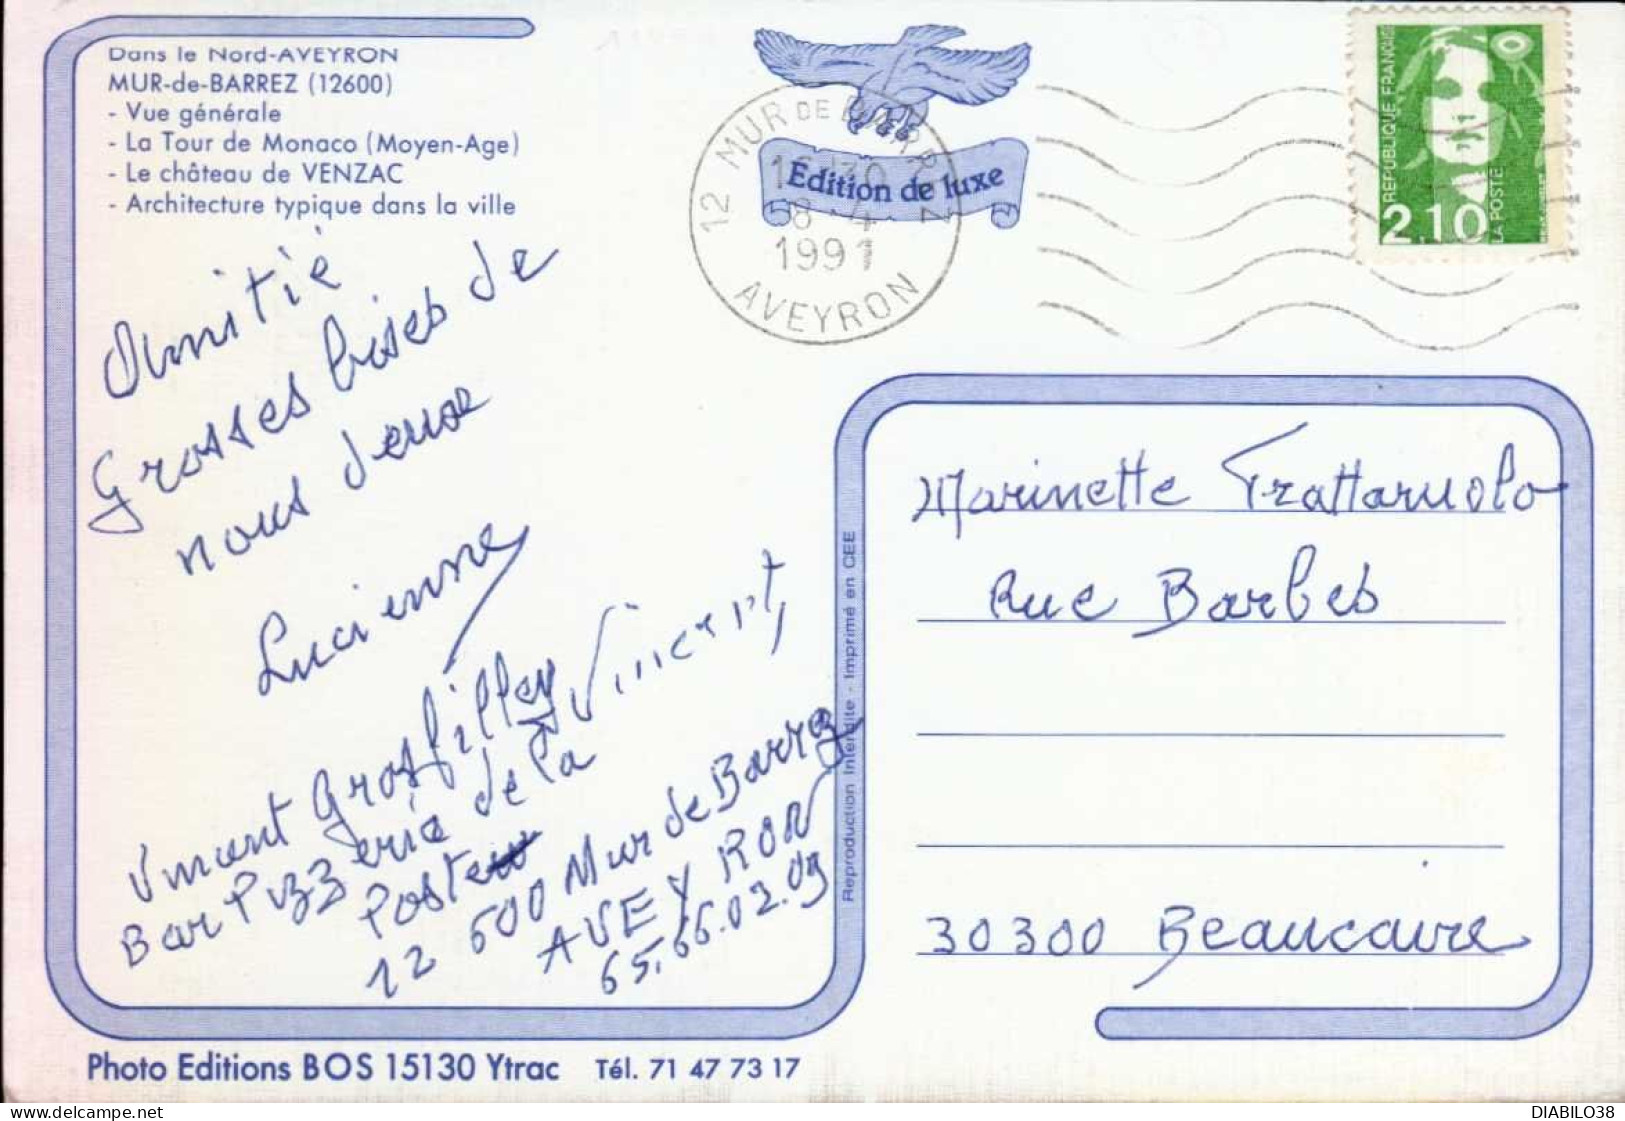 Dans le Nord-AVEYRON
MUR-de-BARREZ (12600)
- Vue générale
- La Tour de Monaco (Moyen-Age)
- Le château de VENZAC
- Architecture typique dans la ville
Edition de luxe
12 MUR DE BARREZ
8 - 4
1991
AVEYRON
REPUBLIQUE FRANÇAISE
LA POSTE
2,10
Amitié
Grosses bises de
nous deux
Lucienne
Vincent,
Vincent Grosfilley
Bar Pizzeria de la
Poste
12 600 Mur de Barrez
AVEYRON
65.66.02.09
Reproduction Interdite - Imprimé en CEE
Marinette Frattaruolo
Rue Barbes
30300 Beaucaire
Photo Editions BOS 15130 Ytrac Tél. 71 47 73 17
DIABILO38